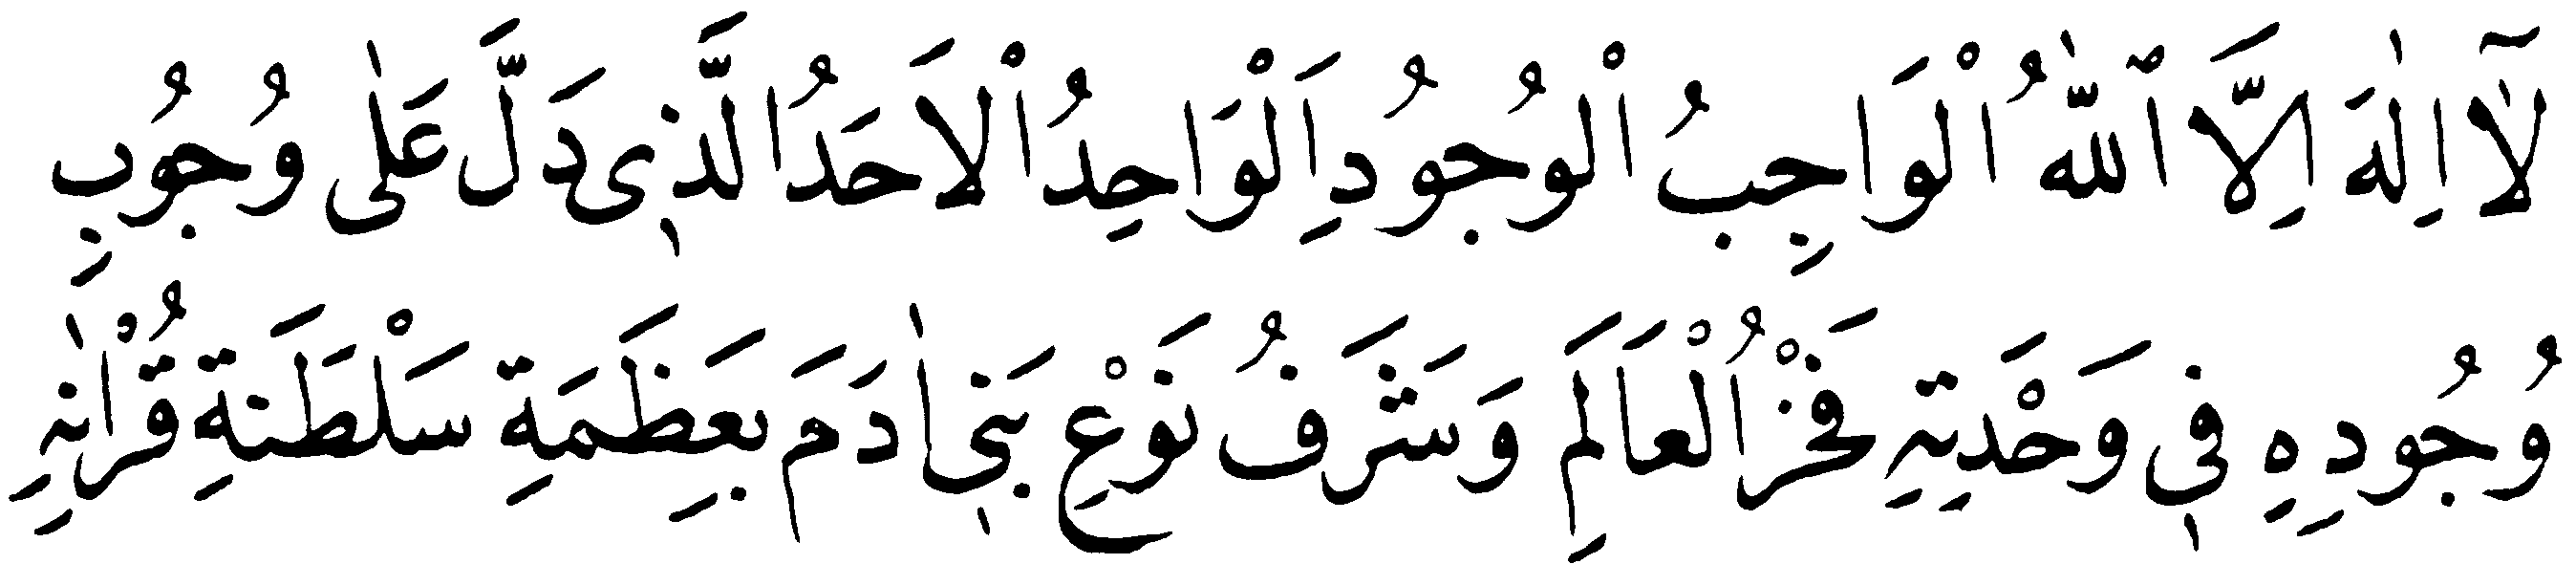 لَآ اِلٰهَ اِلَّا ٱللّٰهُ الْوَاجِبُ الْوُجُودِ اَلْوَاحِدُ الْاَحَدُ الَّذٖى دَلَّ عَلٰى وُجُوبِ
وُجُودِهِ فٖى وَحْدَتِهِ فَخْرُ الْعَالَمِ وَشَرَفُ نَوْعِ بَنٖى اٰدَمَ بِعَظَمَةِ سَلْطَنَةِ قُرْاٰنِهِ